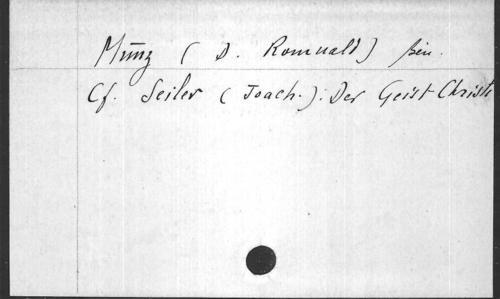 Münz ( D. Romuald)
Cf. Seiler ( Joach.): Der Geist Christi